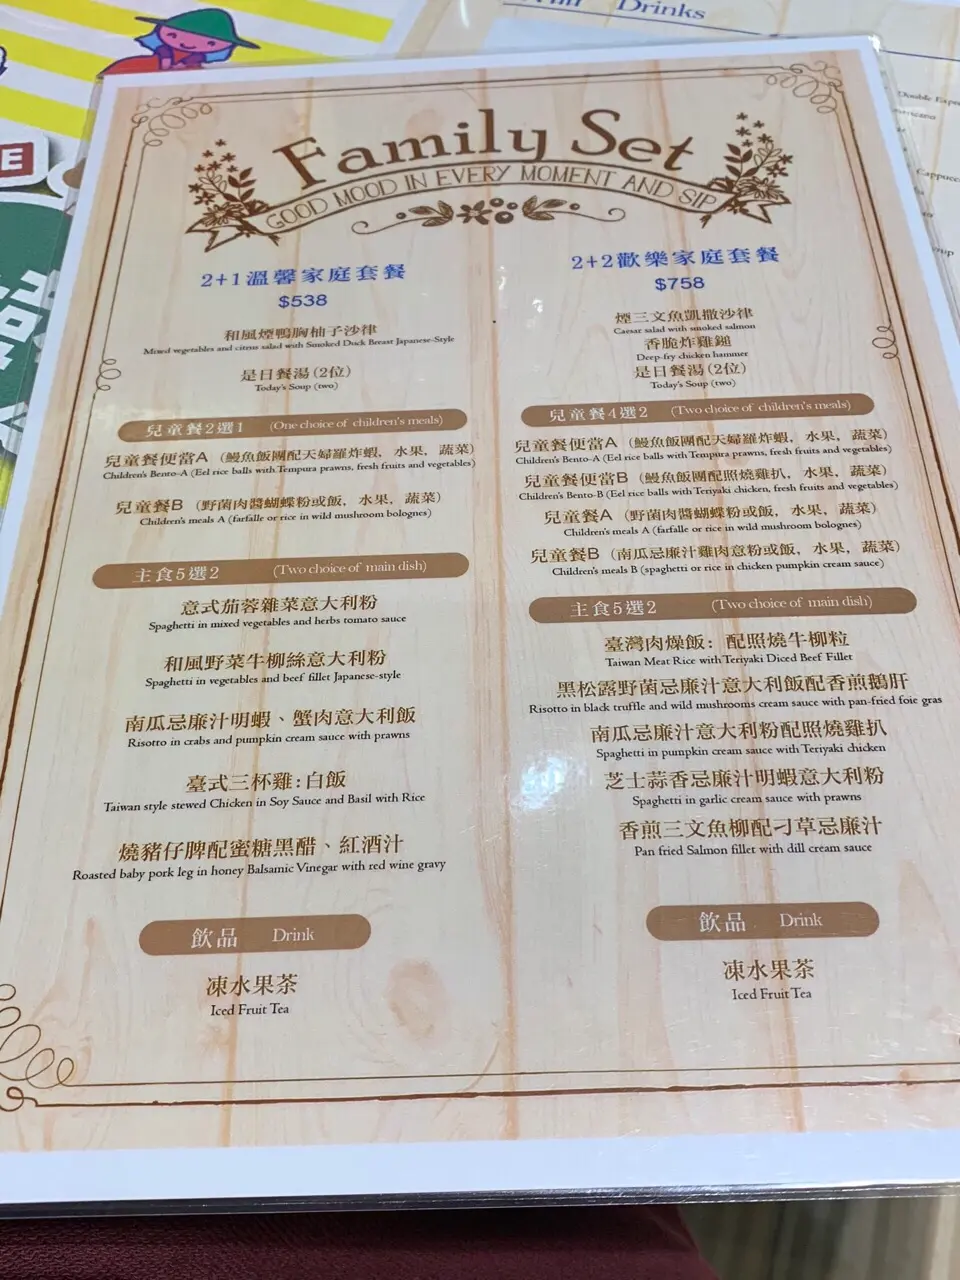 Drinks
E
Family Set
GOOD MOOD IN EVERY MOMENT AND SIP
2+1溫馨家庭套餐
$538
和風煙鴨胸柚子沙律
Mixed vegetables and citrus salad with Smoked Duck Breast Japanese-Style
是日餐湯(2位)
Today's Soup (two)
兒童餐2選1 (One choice of children's meals)
兒童餐便當A (鰻魚飯團配天婦羅炸蝦, 水果, 蔬菜)
Children's Bento-A (Eel rice balls with Tempura prawns, fresh fruits and vegetables)
兒童餐B (野菌肉醬蝴蝶粉或飯, 水果, 蔬菜)
Children's meals A (farfalle or rice in wild mushroom bolognes)
主食5選2 (Two choice of main dish)
意式茄蓉雜菜意大利粉
Spaghetti in mixed vegetables and herbs tomato sauce
和風野菜牛柳絲意大利粉
Spaghetti in vegetables and beef fillet Japanese-style
南瓜忌廉汁明蝦、蟹肉意大利飯
Risotto in crabs and pumpkin cream sauce with prawns
臺式三杯雞:白飯
Taiwan style stewed Chicken in Soy Sauce and Basil with Rice
燒豬仔髀配蜜糖黑醋、紅酒汁
Roasted baby pork leg in honey Balsamic Vinegar with red wine gravy
飲品 Drink
凍水果茶
Iced Fruit Tea
2+2歡樂家庭套餐
$758
煙三文魚凱撒沙律
Caesar salad with smoked salmon
香脆炸雞鎚
Deep-fry chicken hammer
是日餐湯(2位)
Today's Soup (two)
兒童餐4選2 (Two choice of children's meals)
兒童餐便當A (鰻魚飯團配天婦羅炸蝦, 水果, 蔬菜)
Children's Bento-A (Eel rice balls with Tempura prawns, fresh fruits and vegetables)
兒童餐便當B (鰻魚飯團配照燒雞扒, 水果, 蔬菜)
Children's Bento-B (Eel rice balls with Teriyaki chicken, fresh fruits and vegetables)
兒童餐A (野菌肉醬蝴蝶粉或飯, 水果, 蔬菜)
Children's meals A (farfalle or rice in wild mushroom bolognes)
兒童餐B (南瓜忌廉汁雞肉意粉或飯, 水果, 蔬菜)
Children's meals B (spaghetti or rice in chicken pumpkin cream sauce)
主食5選2 (Two choice of main dish)
臺灣肉燥飯: 配照燒牛柳粒
Taiwan Meat Rice with Teriyaki Diced Beef Fillet
黑松露野菌忌廉汁意大利飯配香煎鵝肝
Risotto in black truffle and wild mushrooms cream sauce with pan-fried foie gras
南瓜忌廉汁意大利粉配照燒雞扒
Spaghetti in pumpkin cream sauce with Teriyaki chicken
芝士蒜香忌廉汁明蝦意大利粉
Spaghetti in garlic cream sauce with prawns
香煎三文魚柳配刁草忌廉汁
Pan fried Salmon fillet with dill cream sauce
飲品 Drink
凍水果茶
Iced Fruit Tea